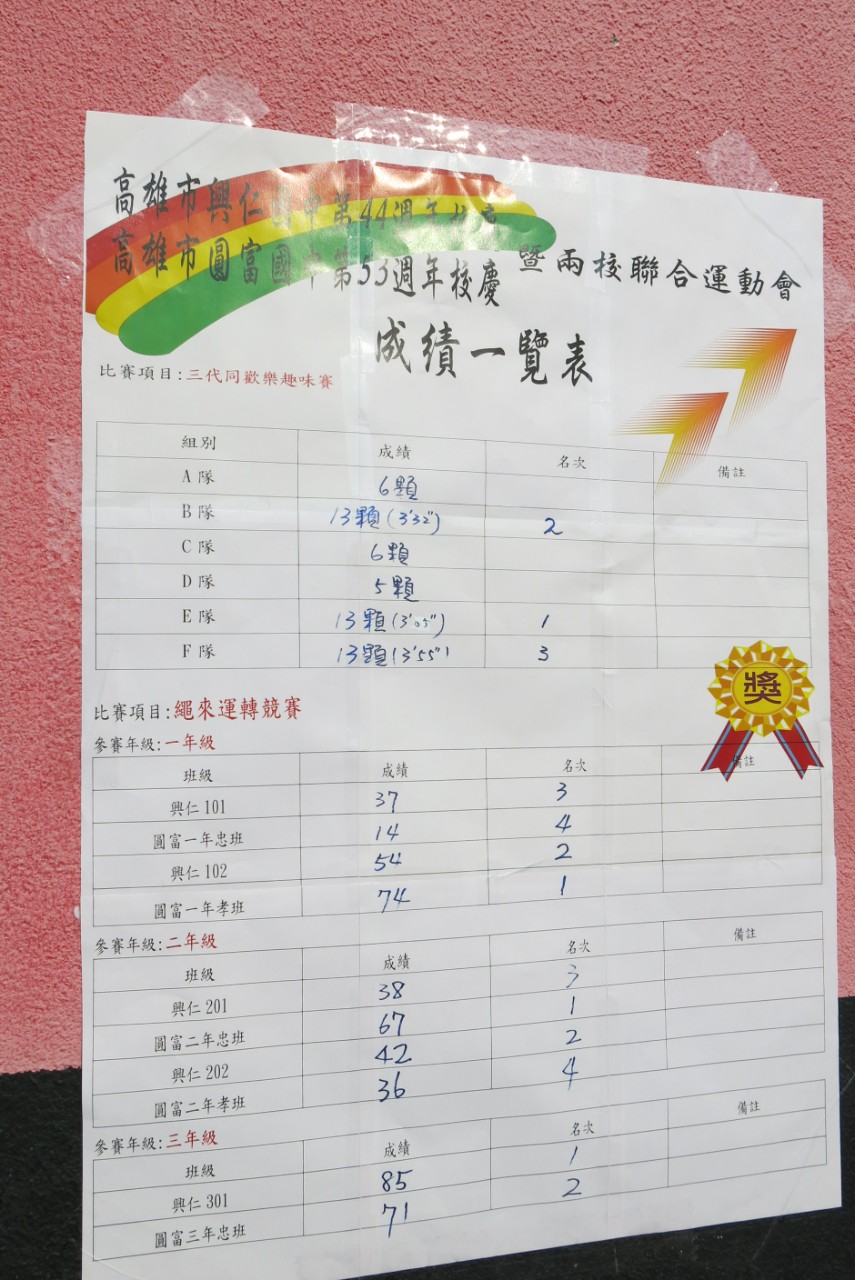 高雄市興仁國中第44週年校慶
高雄市圓富國中第53週年校慶
暨兩校聯合運動會
成績一覽表
比賽項目:三代同歡樂趣味賽
組別 成績 名次 備註
A 隊 6顆
B 隊 13顆(3'32") 2
C 隊 6顆
D 隊 5顆
E 隊 13顆(3'05") 1
F 隊 13顆(3'55") 3
獎
比賽項目:繩來運轉競賽
參賽年級:一年級
班級 成績 名次 備註
興仁 101 37 3
圓富一年忠班 14 4
興仁 102 54 2
圓富一年孝班 74 1
參賽年級:二年級
班級 成績 名次 備註
興仁 201 38 3
圓富二年忠班 67 1
興仁 202 42 2
圓富二年孝班 36 4
參賽年級:三年級
班級 成績 名次 備註
興仁 301 85 1
圓富三年忠班 71 2